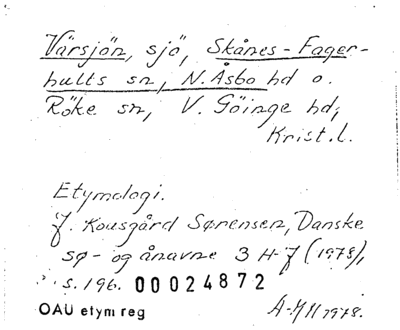 Värsjön, sjö, Skånes-Fager-
hults sn, N. Åsbo hd o.
Röke sn, V. Göinge hd,
Krist.l.
Etymologi.
J. Kousgård Sørensen, Danske
sø- og ånavne 3 H-J (1978),
s. 196. 00024872
OAU etym reg
1978.